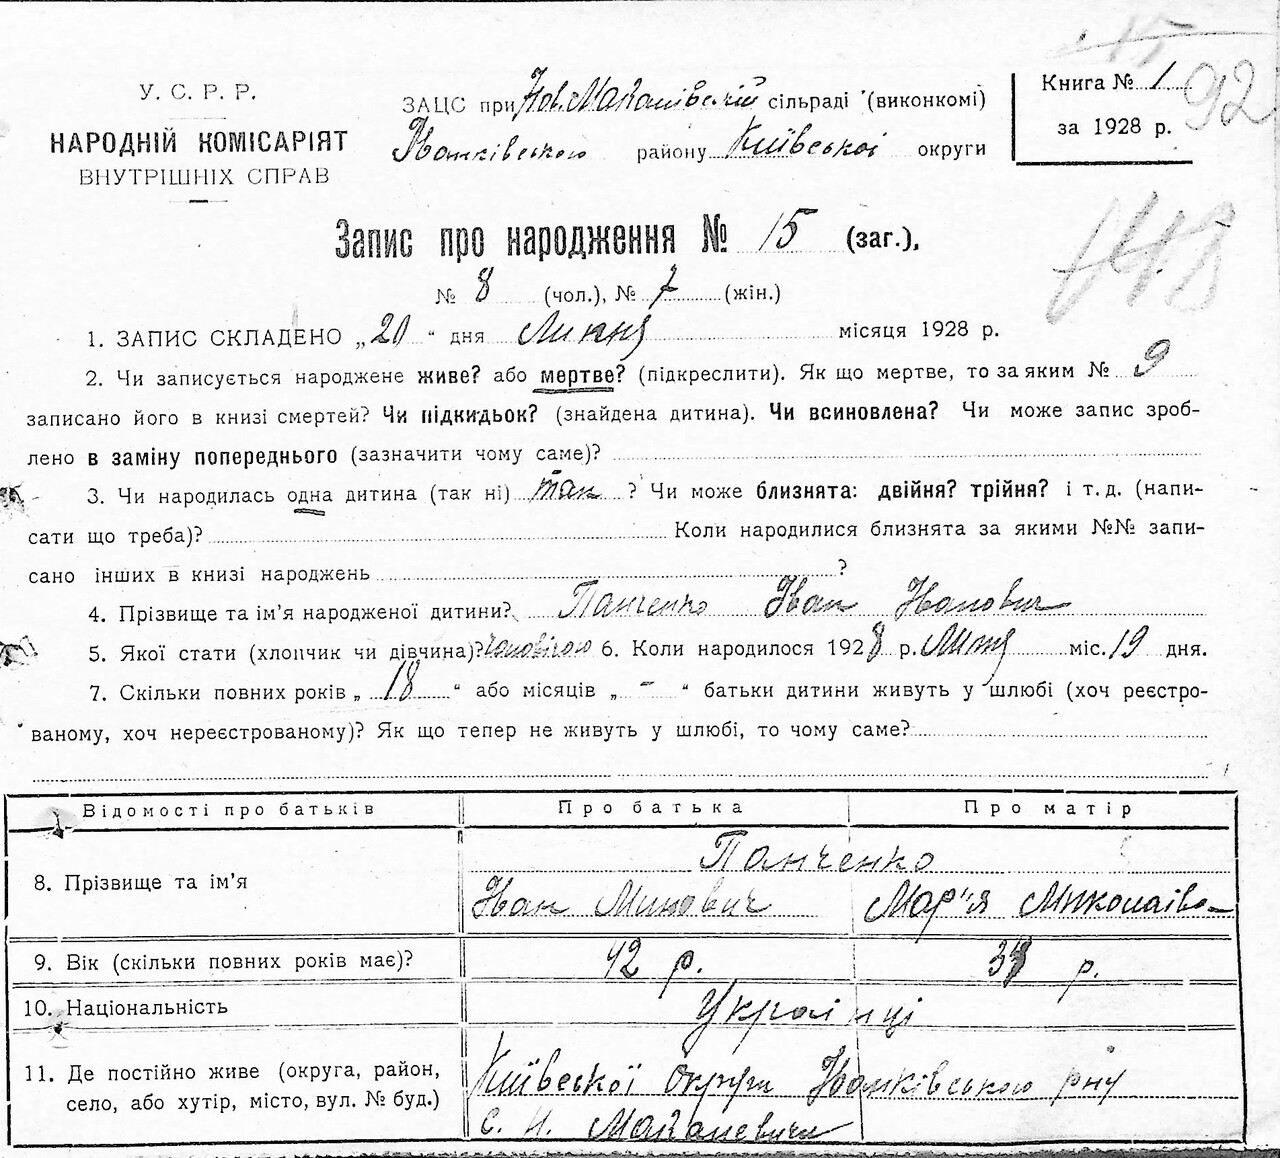 15
92
У. С. Р. Р.
НАРОДНІЙ КОМІСАРІЯТ
ВНУТРІШНІХ СПРАВ
ЗАЦС при Нов. Макалівській сільраді (виконкомі)
Іванківського району Київської округи
Книга № 1
за 1928 р.
Запис про народження № 15 (заг.),
№ 8 (чол.), № 7 (жін.)
1. ЗАПИС СКЛАДЕНО „20“ дня Липня місяця 1928 р.
2. Чи записується народжене живе? або мертве? (підкреслити). Як що мертве, то за яким № 9
записано його в книзі смертей? Чи підкидьок? (знайдена дитина). Чи всиновлена? Чи може запис зроб-
лено в заміну попереднього (зазначити чому саме)?
3. Чи народилась одна дитина (так ні) так ? Чи може близнята: двійня? трійня? і т. д. (напи-
сати що треба)? Коли народилися близнята за якими №№ запи-
сано інших в книзі народжень ?
4. Прізвище та ім'я народженої дитини? Панченко Іван Іванович
5. Якої стати (хлопчик чи дівчина)? 6. Коли народилося 1928 р. Липня міс. 19 дня.
7. Скільки повних років „ 18 “ або місяців „ - “ батьки дитини живуть у шлюбі (хоч реєстро-
ваному, хоч нереєстрованому)? Як що тепер не живуть у шлюбі, то чому саме?
Відомості про батьків Про батька Про матір
8. Прізвище та ім'я Панченко
Іван Минович Мар'я Миколаів 
9. Вік (скільки повних років має)? 42 р. р.
10. Національність Українці
11. Де постійно живе (округа, район, Київської округи Іванківського рну
село, або хутір, місто, вул. № буд.) с. Н. Макалевичи